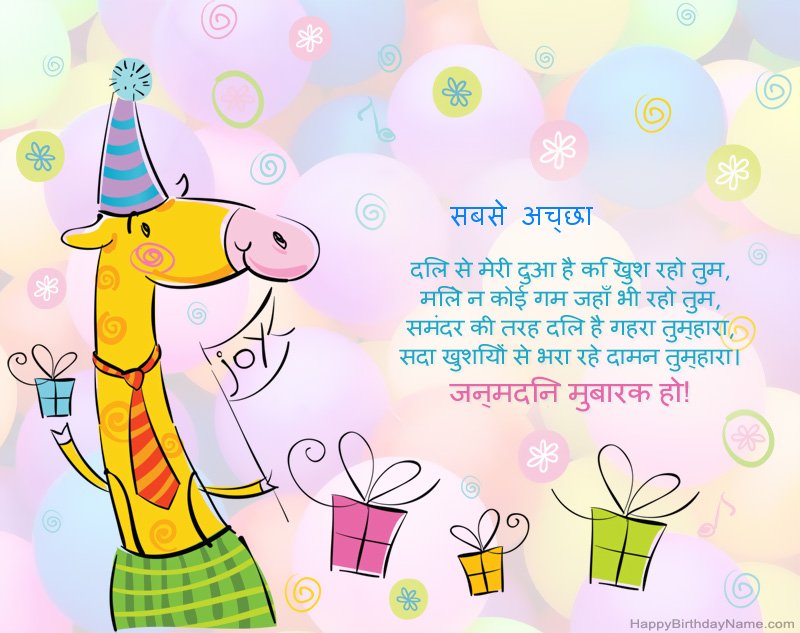 सबसे अच्छा
दिल से मेरी दुआ है कि खुश रहो तुम,
मिले न कोई गम जहाँ भी रहो तुम,
समंदर की तरह दिल है गहरा तुम्हारा,
सदा खुशियों से भरा रहे दामन तुम्हारा।
जन्मदिन मुबारक हो!
joy
HappyBirthdayName.com